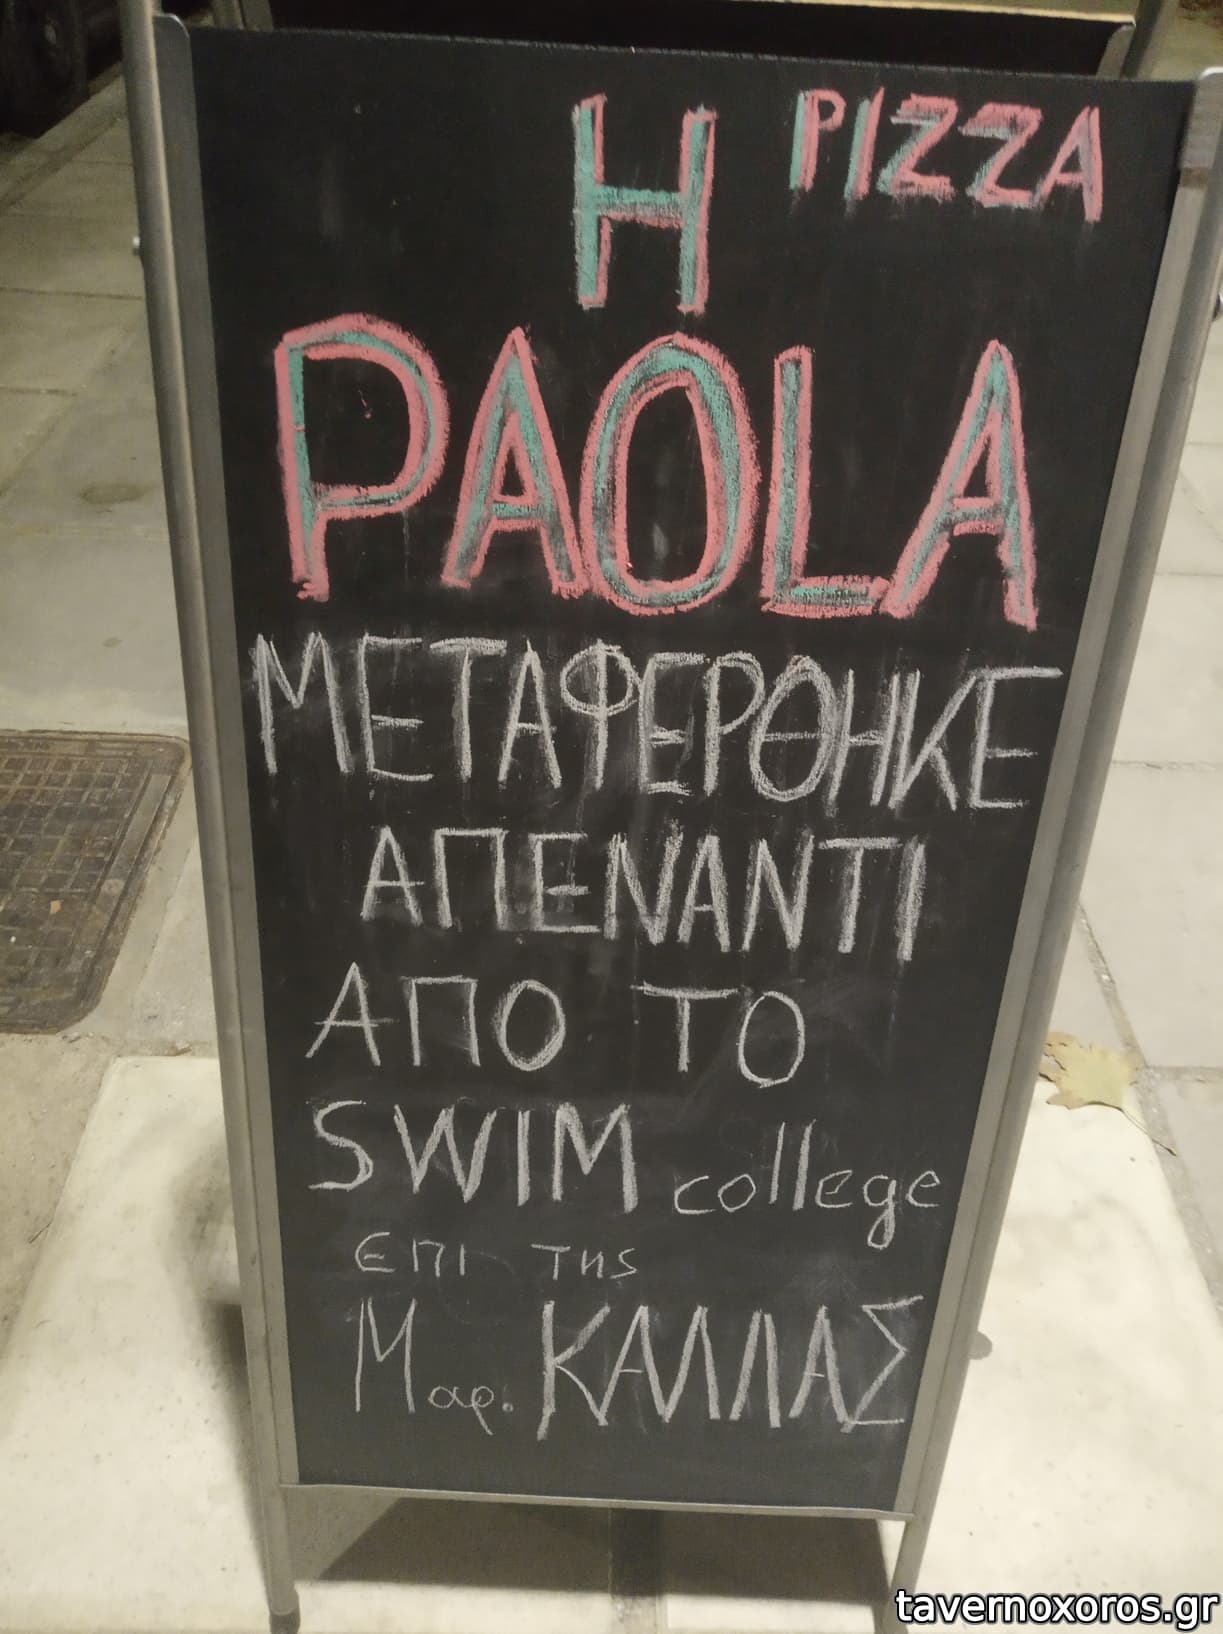 Η PIZZA
PAOLA
ΜΕΤΑΦΕΡΘΗΚΕ
ΑΠΕΝΑΝΤΙ
ΑΠΟ ΤΟ
SWIM college
επι της
Μαρ. ΚΑΛΛΑΣ
tavernoxoros.gr